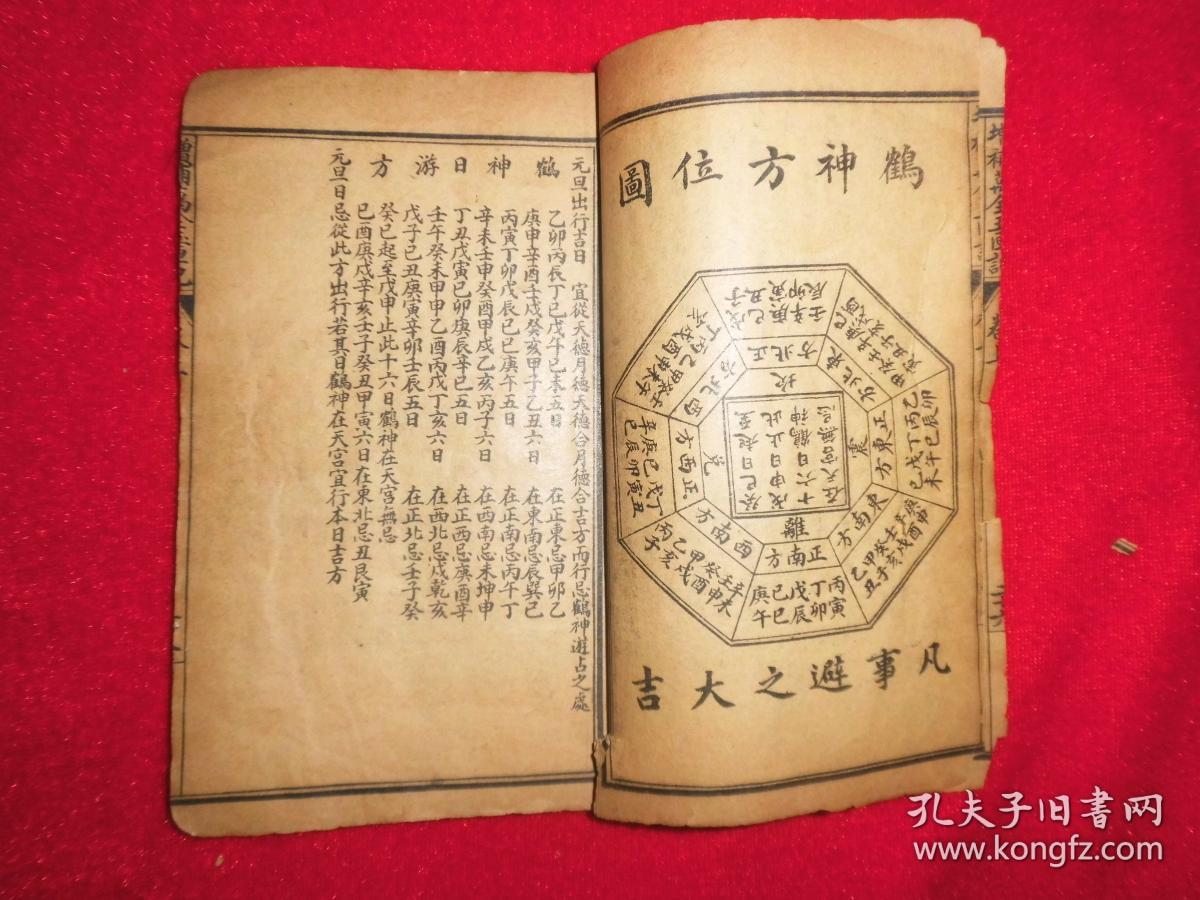 鶴神方位圖
正北方
坎
東北方
正東方
震
東南方
正南方
離
西南方
正西方
兌
西北方
癸巳日起至
戊申日止此
十六日鶴神
在天宮無忌
戊子
己丑
庚寅
辛卯
壬辰
乙卯
丙辰
丁巳
戊午
己未
丙寅
丁卯
戊辰
己巳
庚午
丁丑
戊寅
己卯
庚辰
辛巳
凡事避之大吉
元旦出行吉日 宜從天德月德天德合月德合吉方而行忌鶴神遊占之處
鶴神日游方
乙卯丙辰丁巳戊午己未五日 在正東忌甲卯乙
庚申辛酉壬戌癸亥甲子乙丑六日 在東南忌辰巽巳
丙寅丁卯戊辰己巳庚午五日 在正南忌丙午丁
辛未壬申癸酉甲戌乙亥丙子六日 在西南忌未坤申
丁丑戊寅己卯庚辰辛巳五日 在正西忌庚酉辛
壬午癸未甲申乙酉丙戌丁亥六日 在西北忌戌乾亥
戊子己丑庚寅辛卯壬辰五日 在正北忌壬子癸
癸巳起至戊申止此十六日鶴神在天宮無忌
己酉庚戌辛亥壬子癸丑甲寅六日在東北忌丑艮寅
元旦日忌從此方出行若其日鶴神在天宮宜行本日吉方
孔夫子旧书网
www.kongfz.com